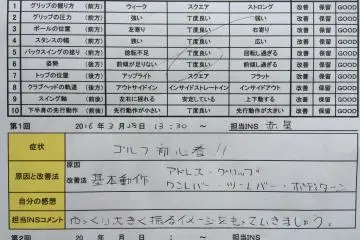 1 グリップの握り方 (前方) ウィーク スクエア ストロング 改善 保留 GOOD
2 グリップの圧力 (前方) 強い 丁度良い 弱い 改善 保留 GOOD
3 ボールの位置 (前方) 左寄り 丁度良い 右寄り 改善 保留 GOOD
4 スタンスの幅 (前方) 狭い 丁度良い 広い 改善 保留 GOOD
5 バックスイングの捻り (前方) 捻転不足 丁度良い 回転し過ぎる 改善 保留 GOOD
6 姿勢 (後方) 前傾が足りない 丁度良い 前傾し過ぎる 改善 保留 GOOD
7 トップの位置 (後方) アップライト スクエア フラット 改善 保留 GOOD
8 クラブヘッドの軌道 (後方) アウトサイドイン インサイドストレートイン インサイドアウト 改善 保留 GOOD
9 スイング軸 (前方) 左右に揺れる 安定している 上下動する 改善 保留 GOOD
10 下半身の先行動作 (前方) 先行動作が小さい 丁度良い 先行動作が大きい 改善 保留 GOOD
第1回 2016年3月28日 13:30~ 担当INS 赤星
症状 ゴルフ初心者!!
原因
原因と改善法 アドレス・グリップ
改善法 基本動作 ワンレバー・ツーレバー・ボディターン
自分の感想
担当INSコメント ゆっくり大きく振るイメージをもっていきましょう。
第2回 20 年 月 日 : ~ 担当INS